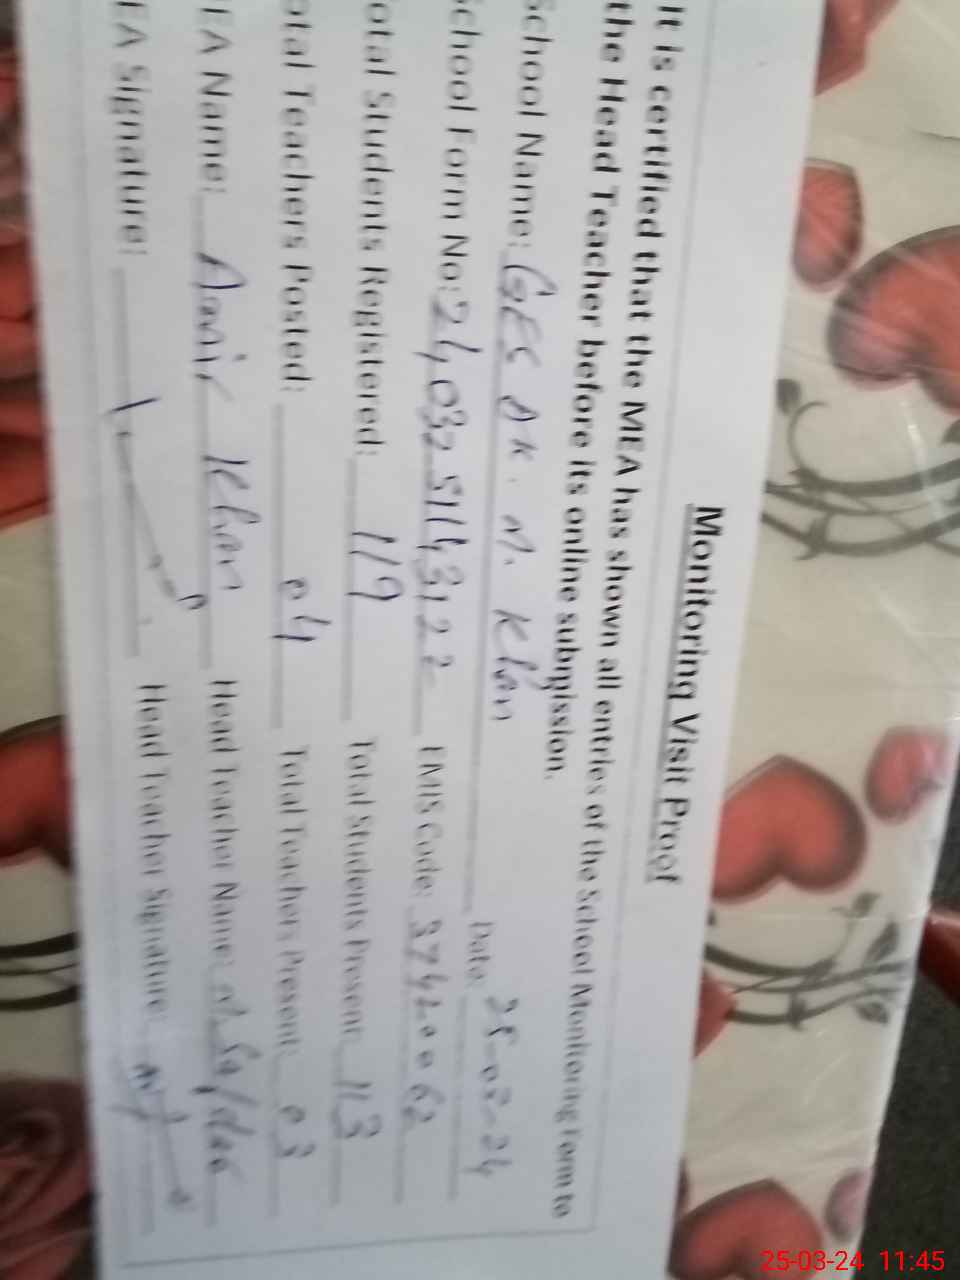 Monitoring Visit Proof
It is certified that the MEA has shown all entries of the School Monitoring Form to
the Head Teacher before its online submission.
School Name: GES AK. M. Khan Date: 25-03-24
School Form No: 2403251143122 EMIS Code: 37420062
otal Students Registered: 119 Total Students Present: 113
otal Teachers Posted: 04 Total Teachers Present: 03
EA Name: Amir Khan Head Teacher Name: M. Safdar
EA Signature: Head Teacher Signature:
25-03-24 11:45